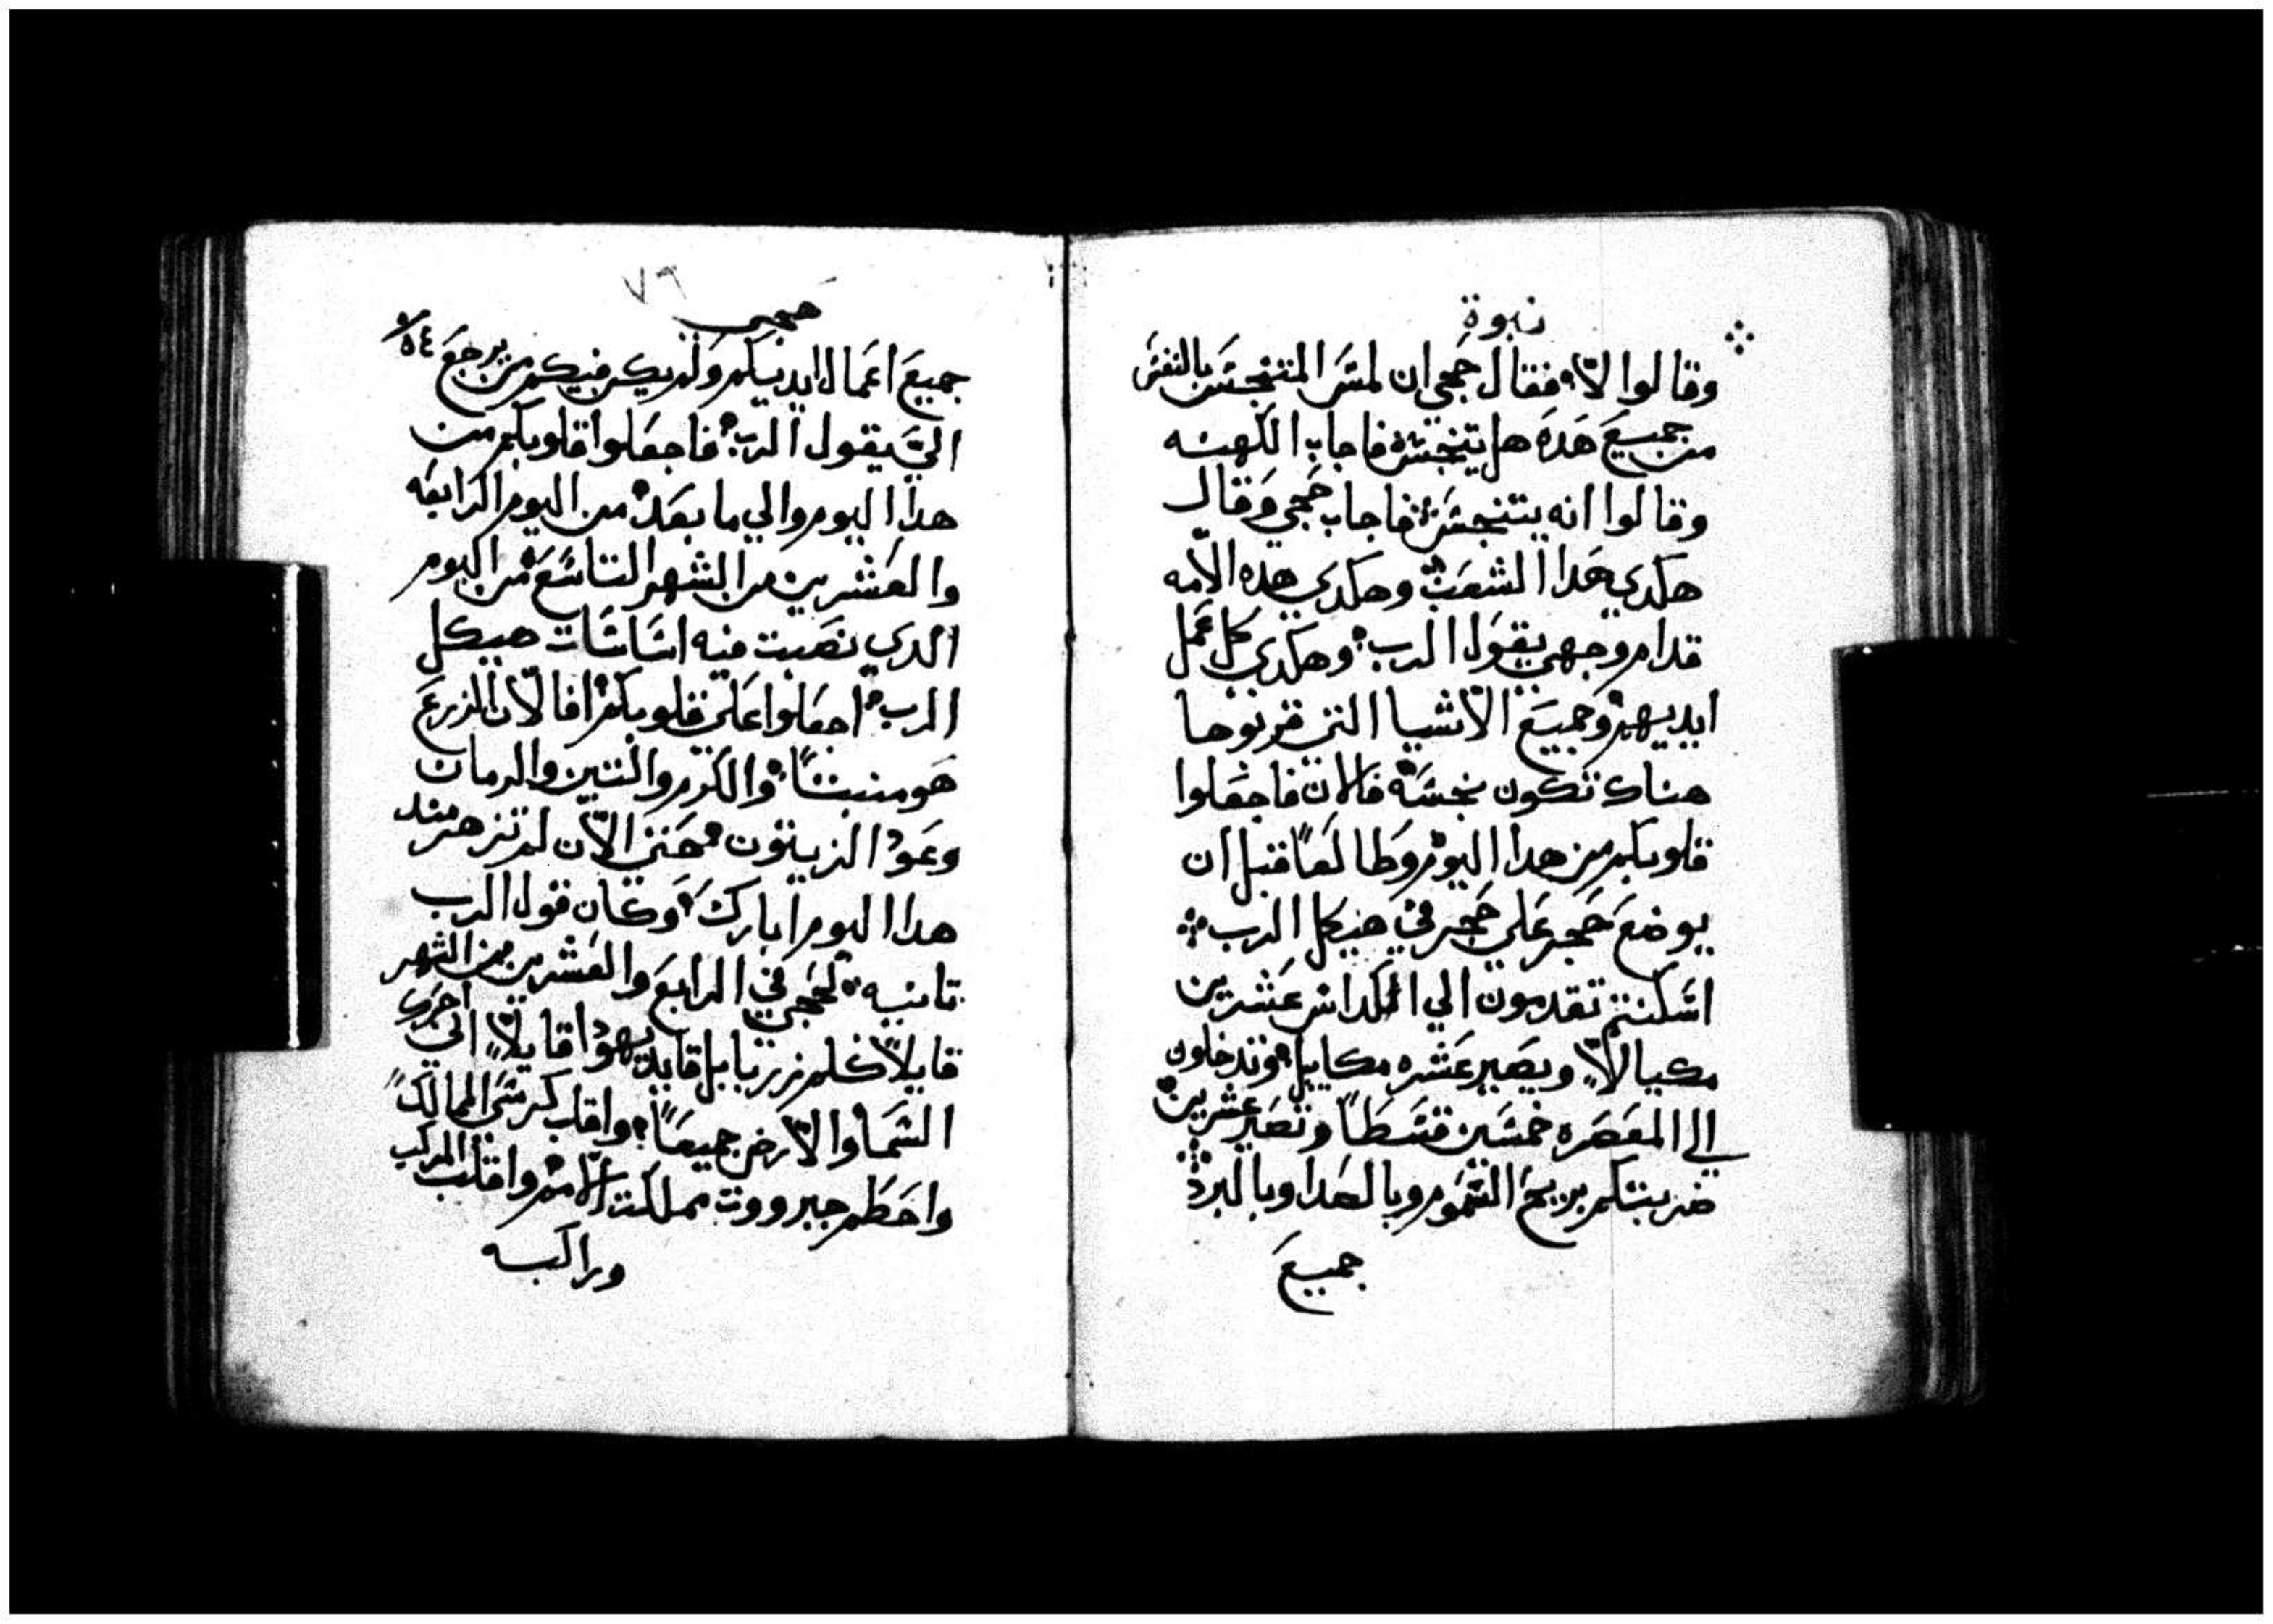 نبوة
وقالوا لا فقال حجى ان لمس المتنجس بالنفس
من جميع هده هل يتنجس فاجاب الكهنه
وقالوا انه يتنجس فاجاب حجى وقال
هكدي هدا الشعب وهكدي هده الامه
قدام وجهي يقول الرب وهكدي كل عمل
ايديهم وجميع الاشيا التي قربوها
هناك تكون نجسه فالان فاجعلوا
قلوبكم من هدا اليوم وطالعا قبل ان
يوضع حجر على حجر في هيكل الرب
اسكنتم تقدمون الي الكداس عشرين
مكيالا ويصير عشره مكاييل وتدخلون
الي المعصره خمسين قسطا وتصير عشرين
ضربتكم بريح السموم وبالصدا وبالبرد
جميع
٧٦
حجى
٥٤
جميع اعمال ايديكم ولم يكن فيكم من يرجع
الي يقول الرب فاجعلوا قلوبكم من
هدا اليوم والي ما بعد من اليوم الرابعه
والعشرين من الشهر التاسع من اليوم
الدي نصبت فيه اساسات هيكل
الرب اجعلوا على قلوبكم افالان الزرع
هو منبتا والكرم والتين والرمان
وعود الزيتون حتى الان لم تزهر مند
هدا اليوم ابارك وكان قول الرب
تانيه لحجى في الرابع والعشرين من الشهر
قايلا كلم زربابل قايد يهودا قايلا اني احرك
السما والارض جميعا واقلب كرسى الممالك
واحطم جبرووت مملكت الامم واقلب المركب
وراكبه